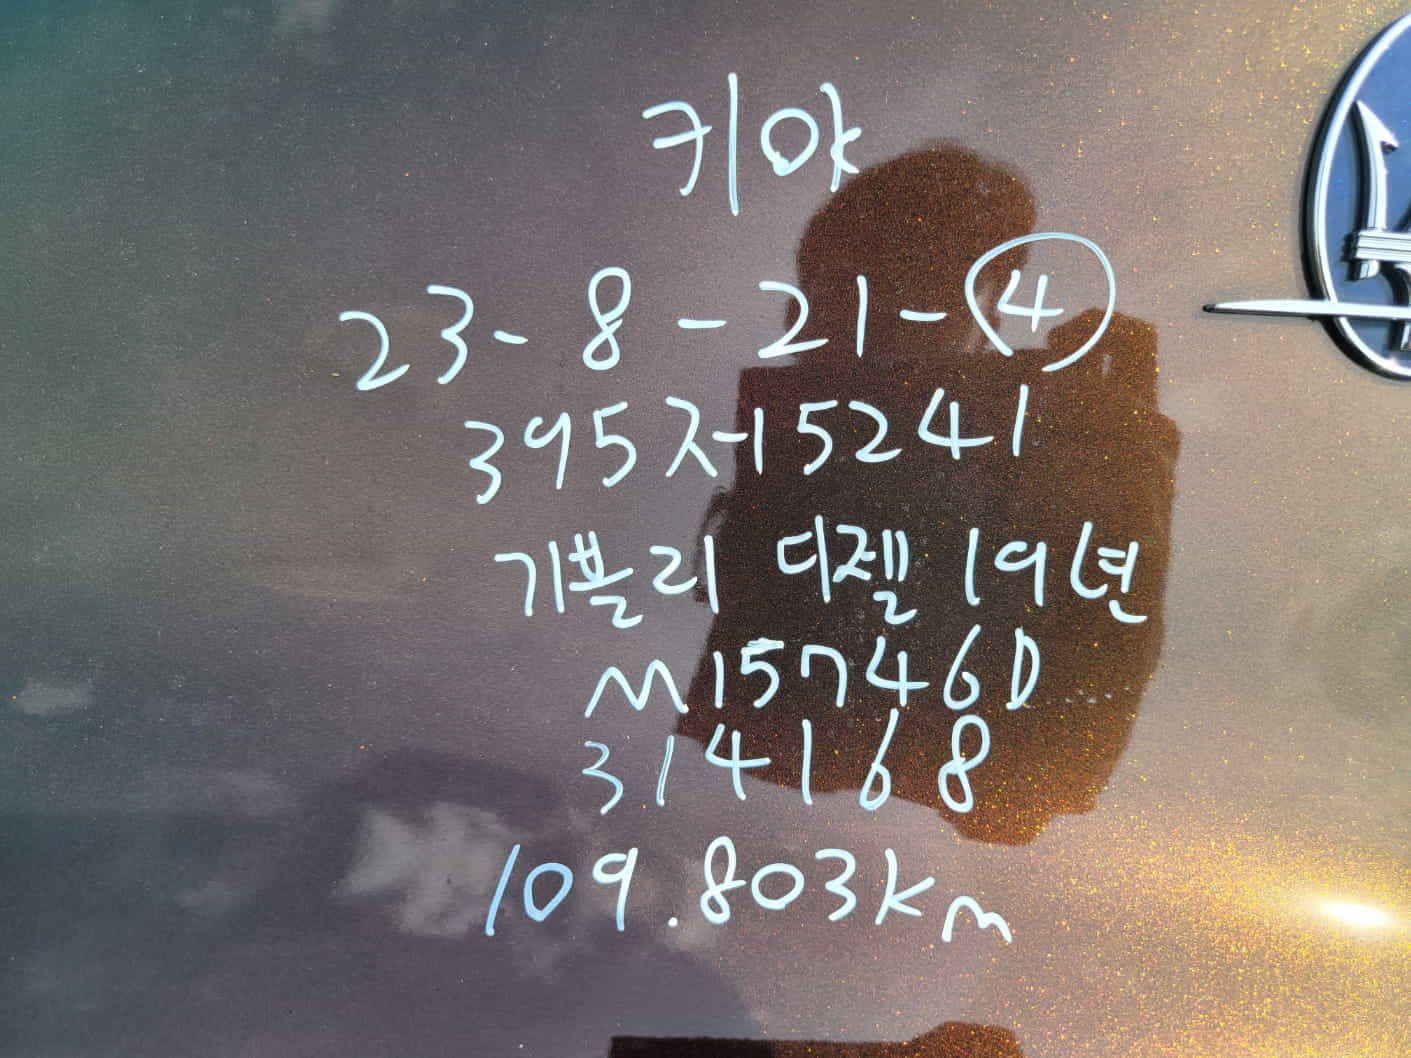 키야
23-8-21-4
395저5241
기블리 디젤 19년
M15746D
314168
109.803km